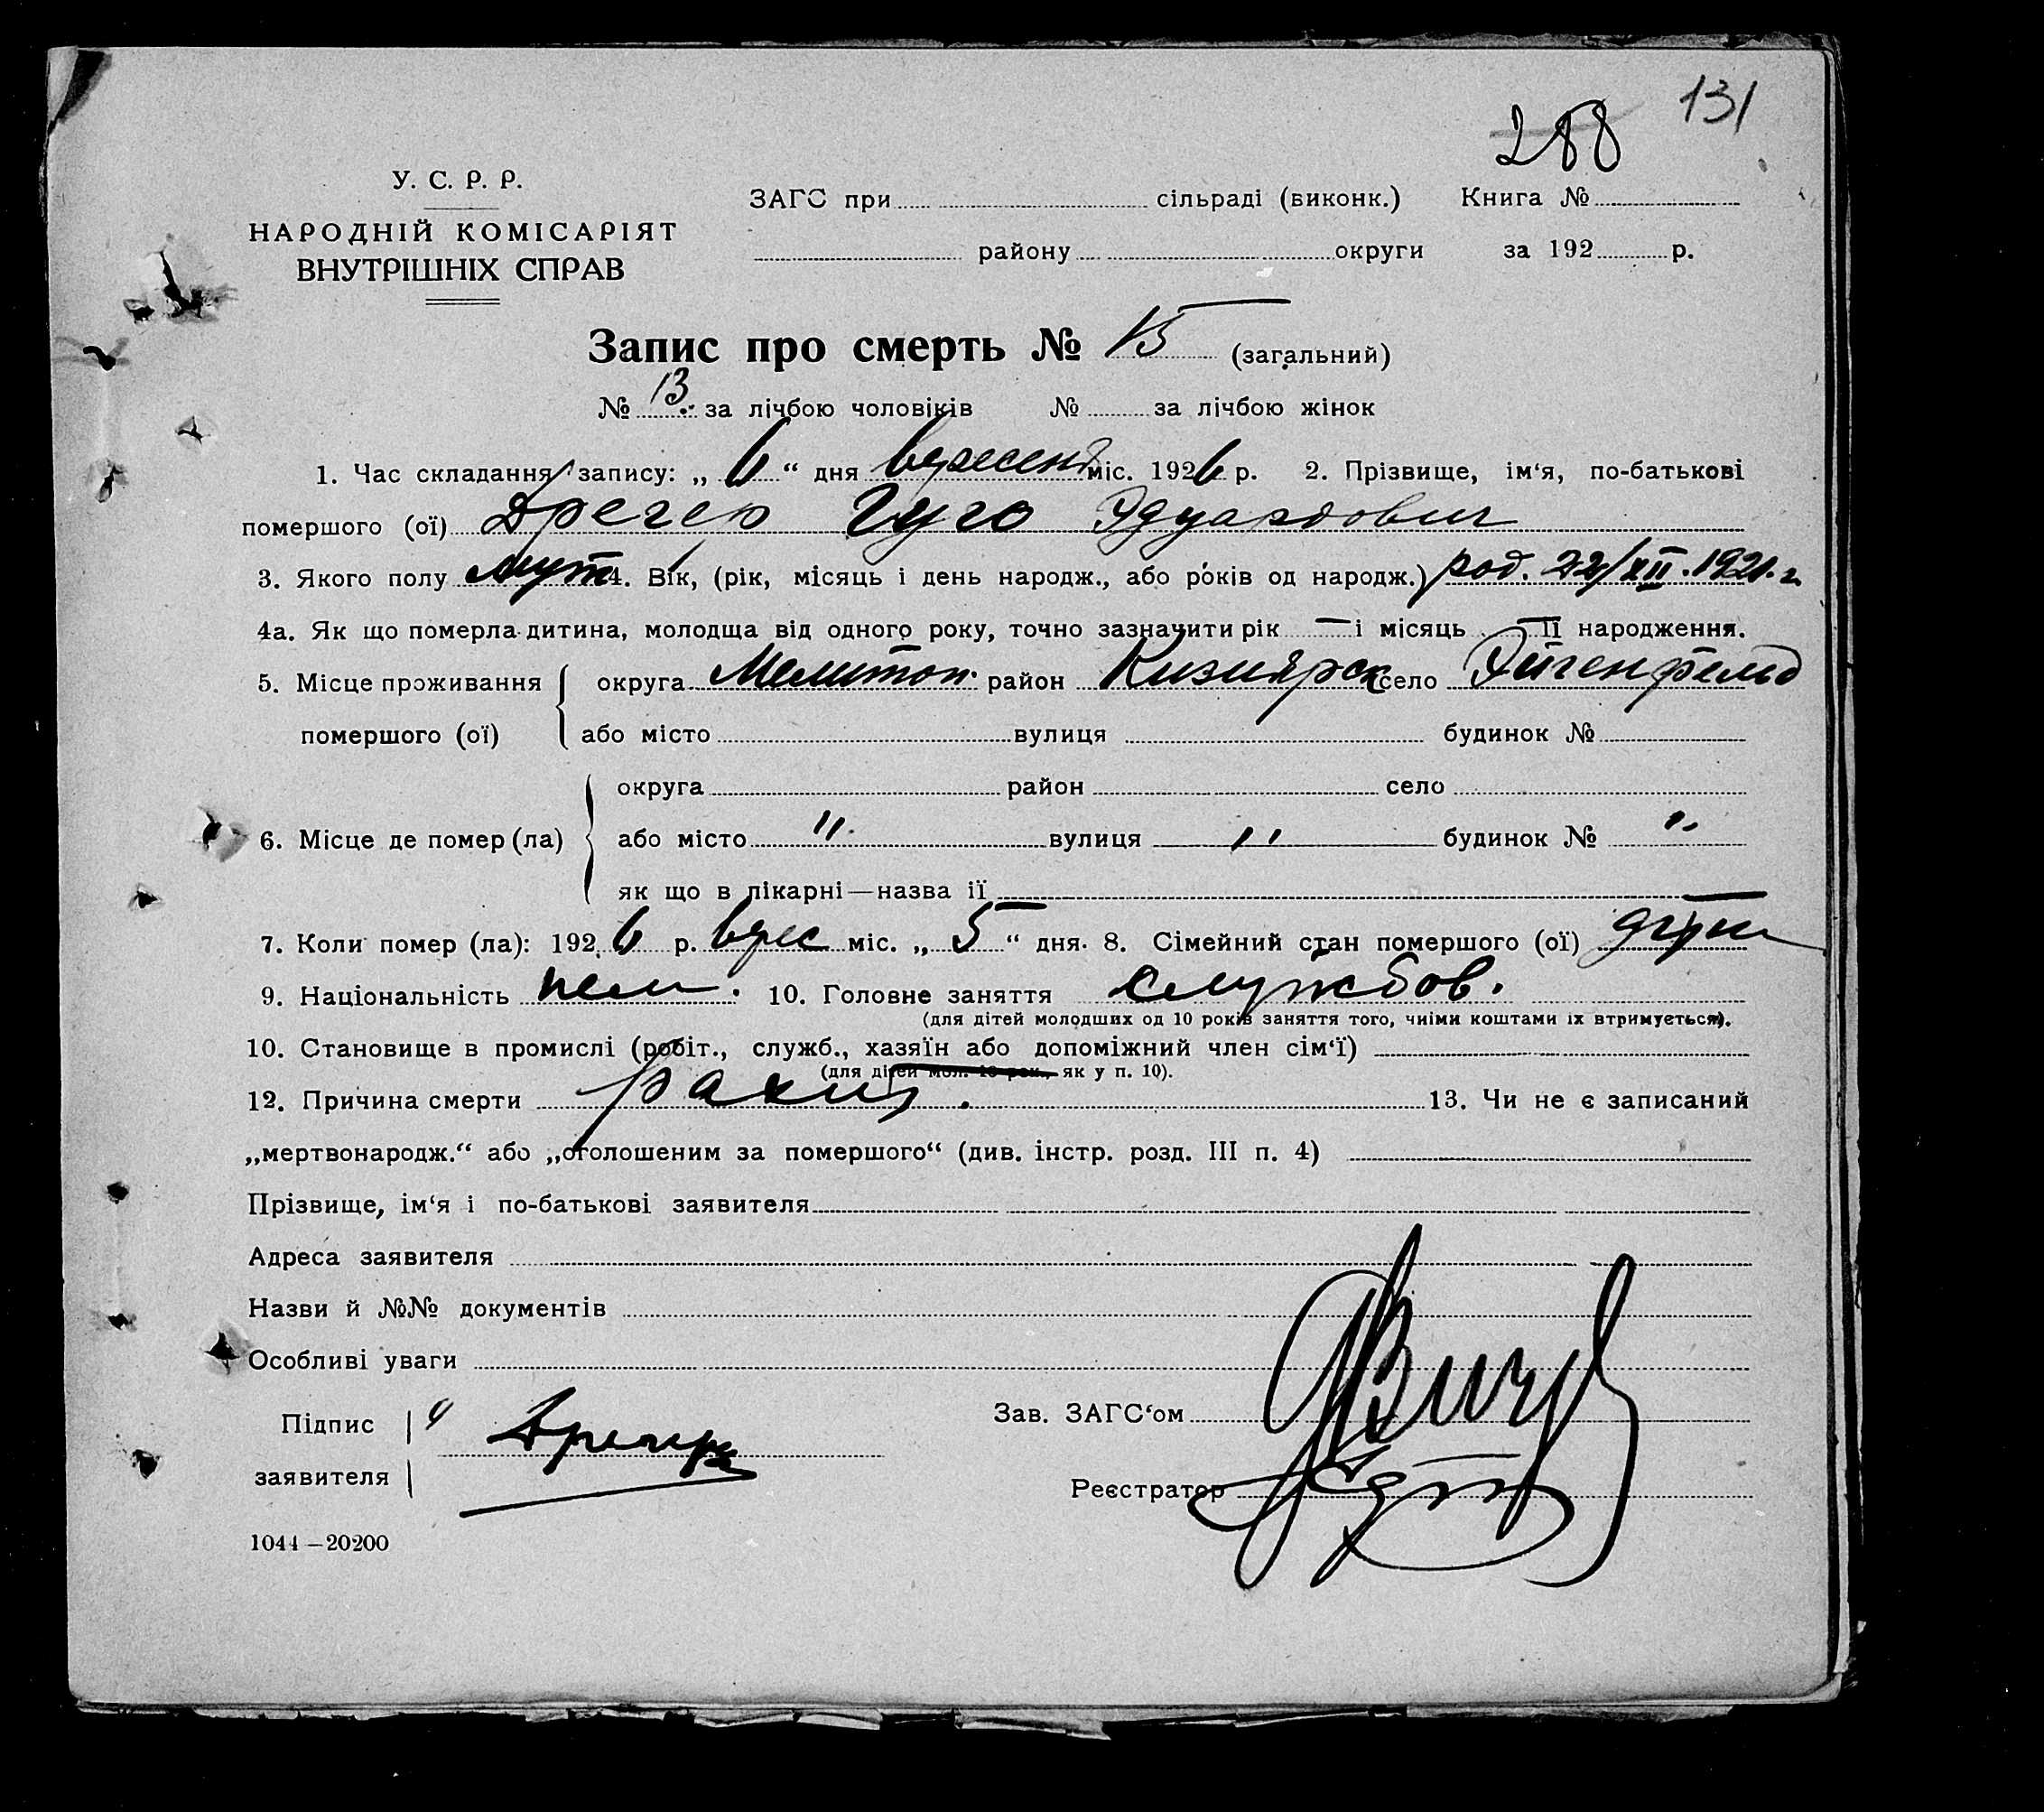 131
288
У. С. Р. Р.
НАРОДНІЙ КОМІСАРІЯТ
ВНУТРІШНІХ СПРАВ
ЗАГС при сільраді (виконк.) Книга №
району округи за 192 р.
Запис про смерть № 15 (загальний)
№ 13 за лічбою чоловіків № за лічбою жінок
1. Час складання запису: „ 6 “ дня вересень міс. 1926 р. 2. Прізвище, ім‘я, по-батькові
помершого (ої) Дрегер Гуго Эдуардович
3. Якого полу муж 4. Вік, (рік, місяць і день народж., або років од народж.) род. 22/XII. 1921. г.
4а. Як що померла дитина, молодща від одного року, точно зазначити рік — і місяць — її народження.
5. Місце проживання округа Мелитоп. район Кизиярск село Эйгенфельд
помершого (ої) або місто вулиця будинок №
округа район село
6. Місце де помер (ла) або місто " вулиця " будинок № "
як що в лікарні—назва її
7. Коли помер (ла): 1926 р. верес міс. „ 5 “ дня. 8. Сімейний стан помершого (ої)
9. Національність нем. 10. Головне заняття службов.
(для дітей молодших од 10 років заняття того, чиїми коштами їх втримується).
10. Становище в промислі (робіт., служб., хазяїн або допоміжний член сім‘ї)
(для дітей мол. 10 рок., як у п. 10).
12. Причина смерти рахит. 13. Чи не є записаний
„мертвонародж.“ або „оголошеним за помершого“ (див. інстр. розд. III п. 4)
Прізвище, ім‘я і по-батькові заявителя
Адреса заявителя
Назви й №№ документів
Особливі уваги
Підпис Зав. ЗАГС‘ом
заявителя Дрегер Реєстратор
1044—20200